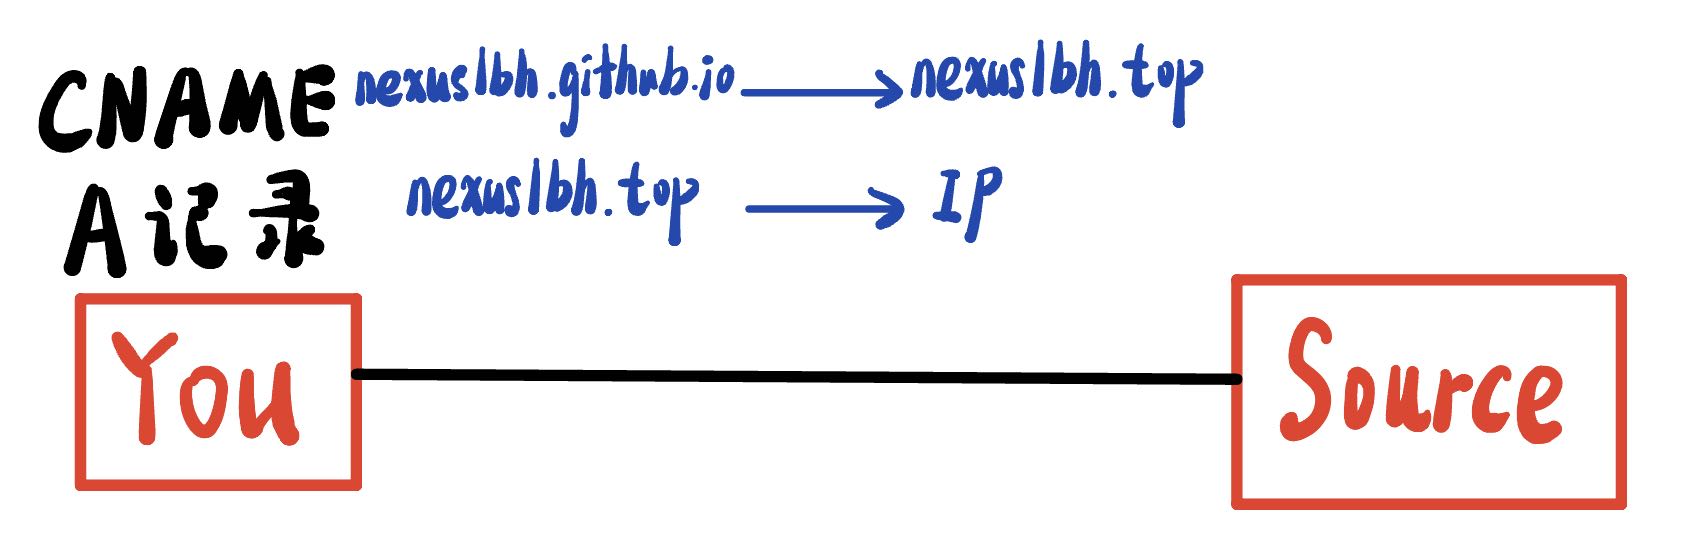 CNAME nexuslbh.github.io → nexuslbh.top
A记录 nexuslbh.top → IP
You
Source